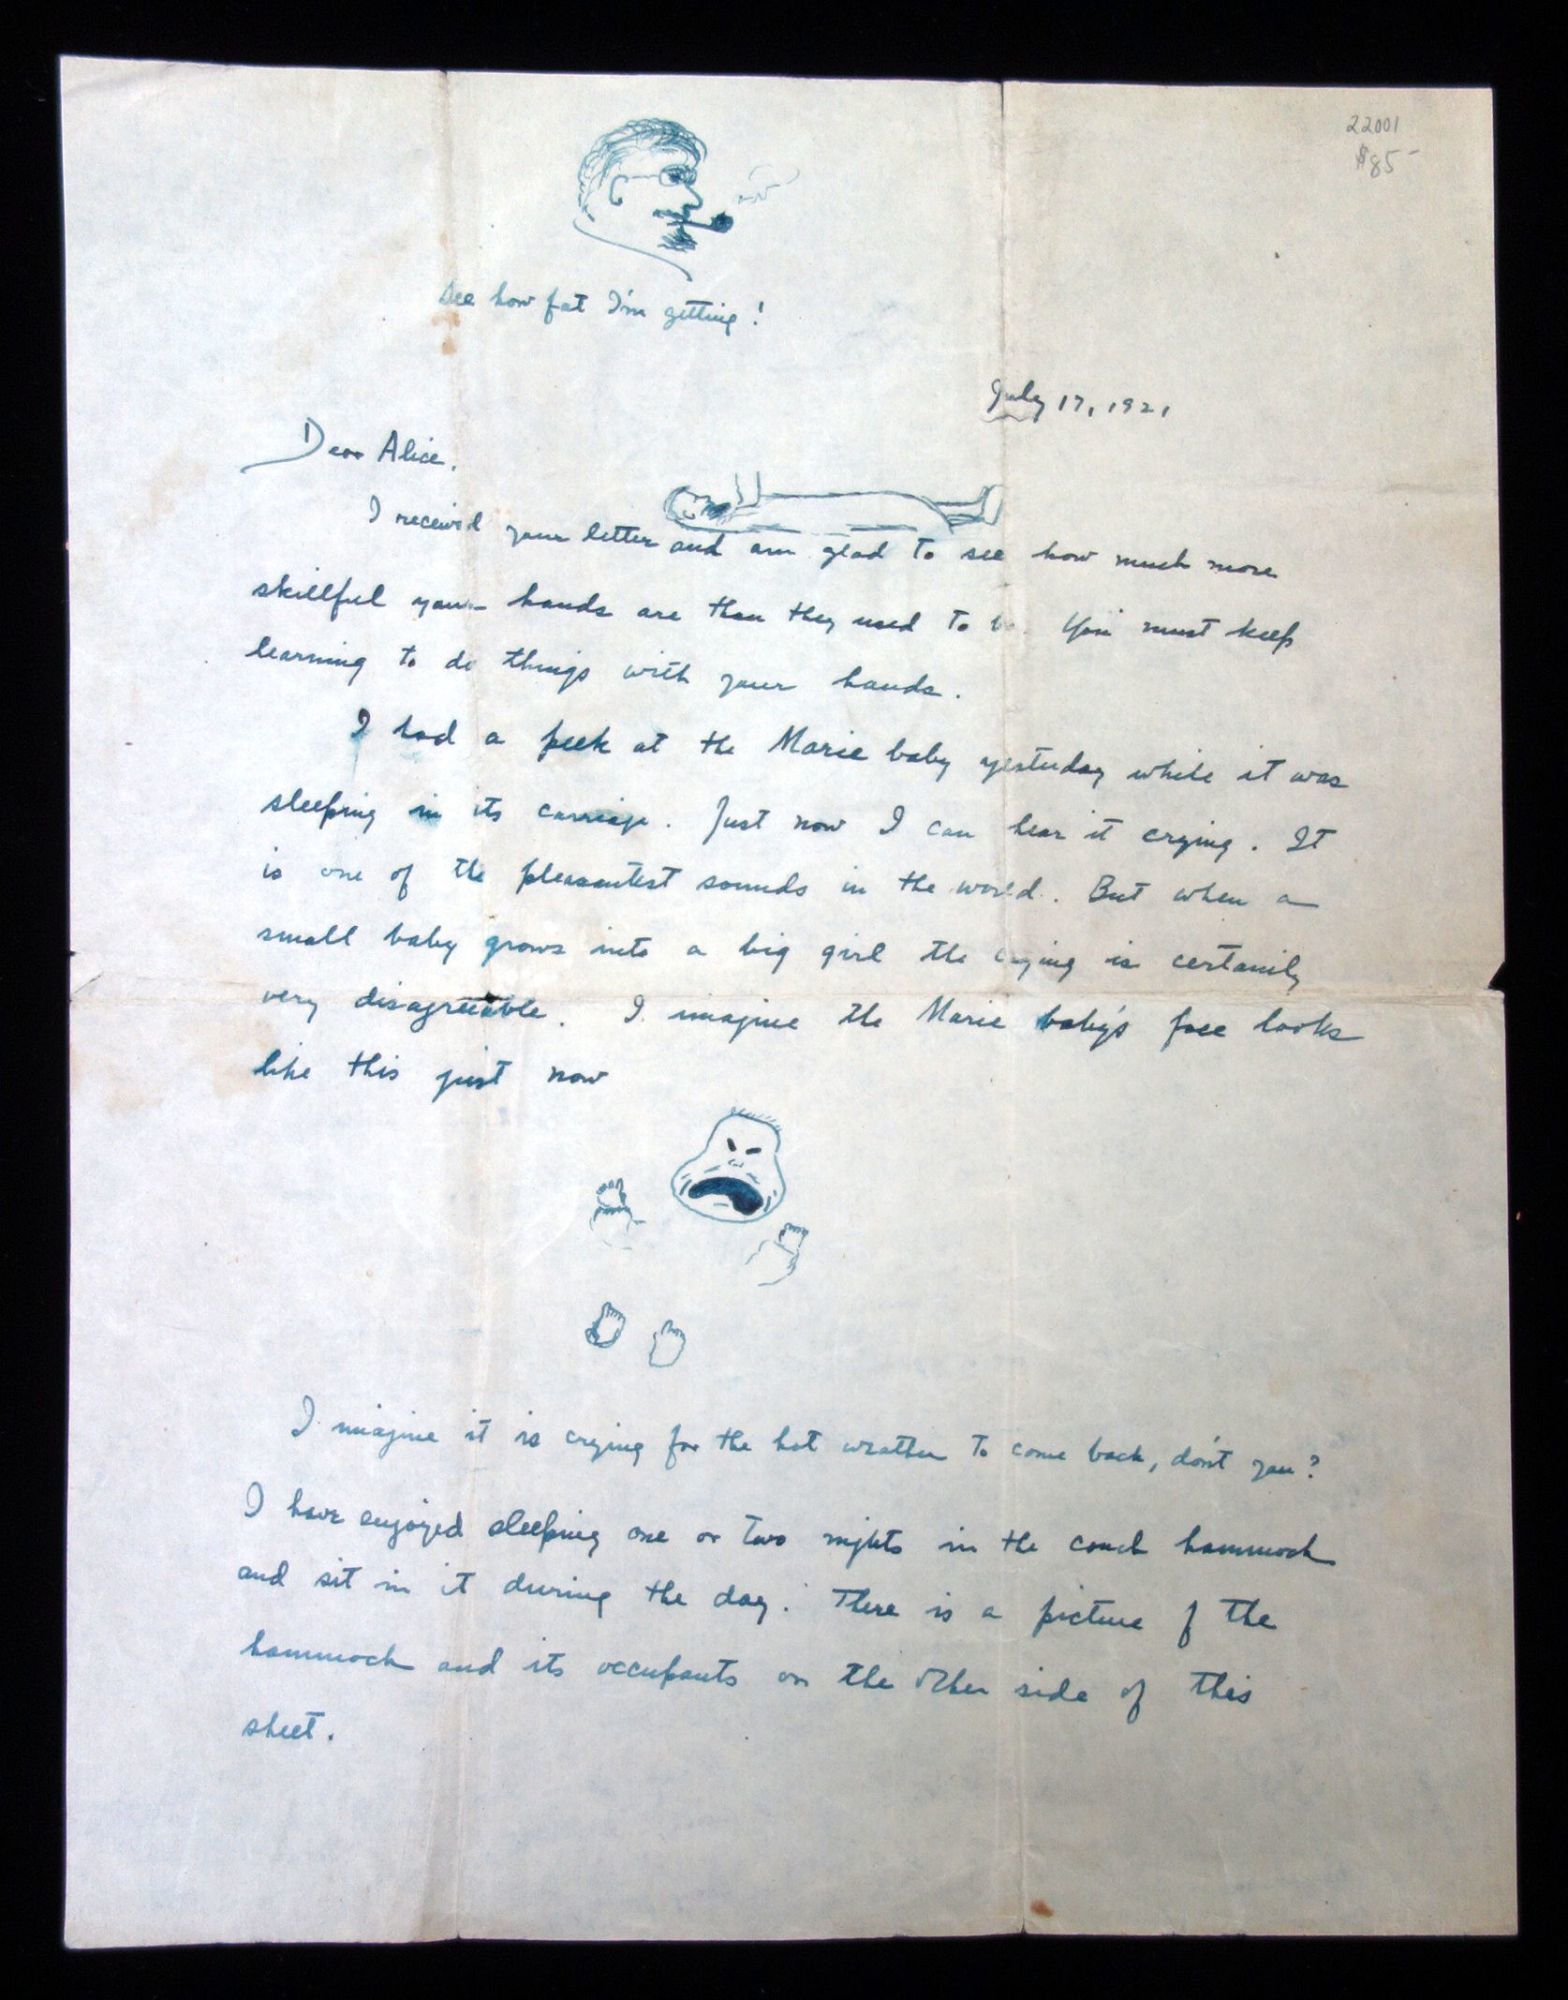 22001
$85-
See how fat I'm getting!
July 17, 1921
Dear Alice.
I received your letter and am glad to see how much more
skillful your hands are than they used to be. You must keep
learning to do things with your hands.
I had a peek at the Marie baby yesterday while it was
sleeping in its carriage. Just now I can hear it crying. It
is one of the pleasantest sounds in the world. But when a
small baby grows into a big girl the crying is certainly
very disagreeable. I imagine the Marie baby's face looks
like this just now
I imagine it is crying for the hot weather to come back, don't you?
I have enjoyed sleeping one or two nights in the couch hammock
and sit in it during the day. There is a picture of the
hammock and its occupants on the other side of this
sheet.